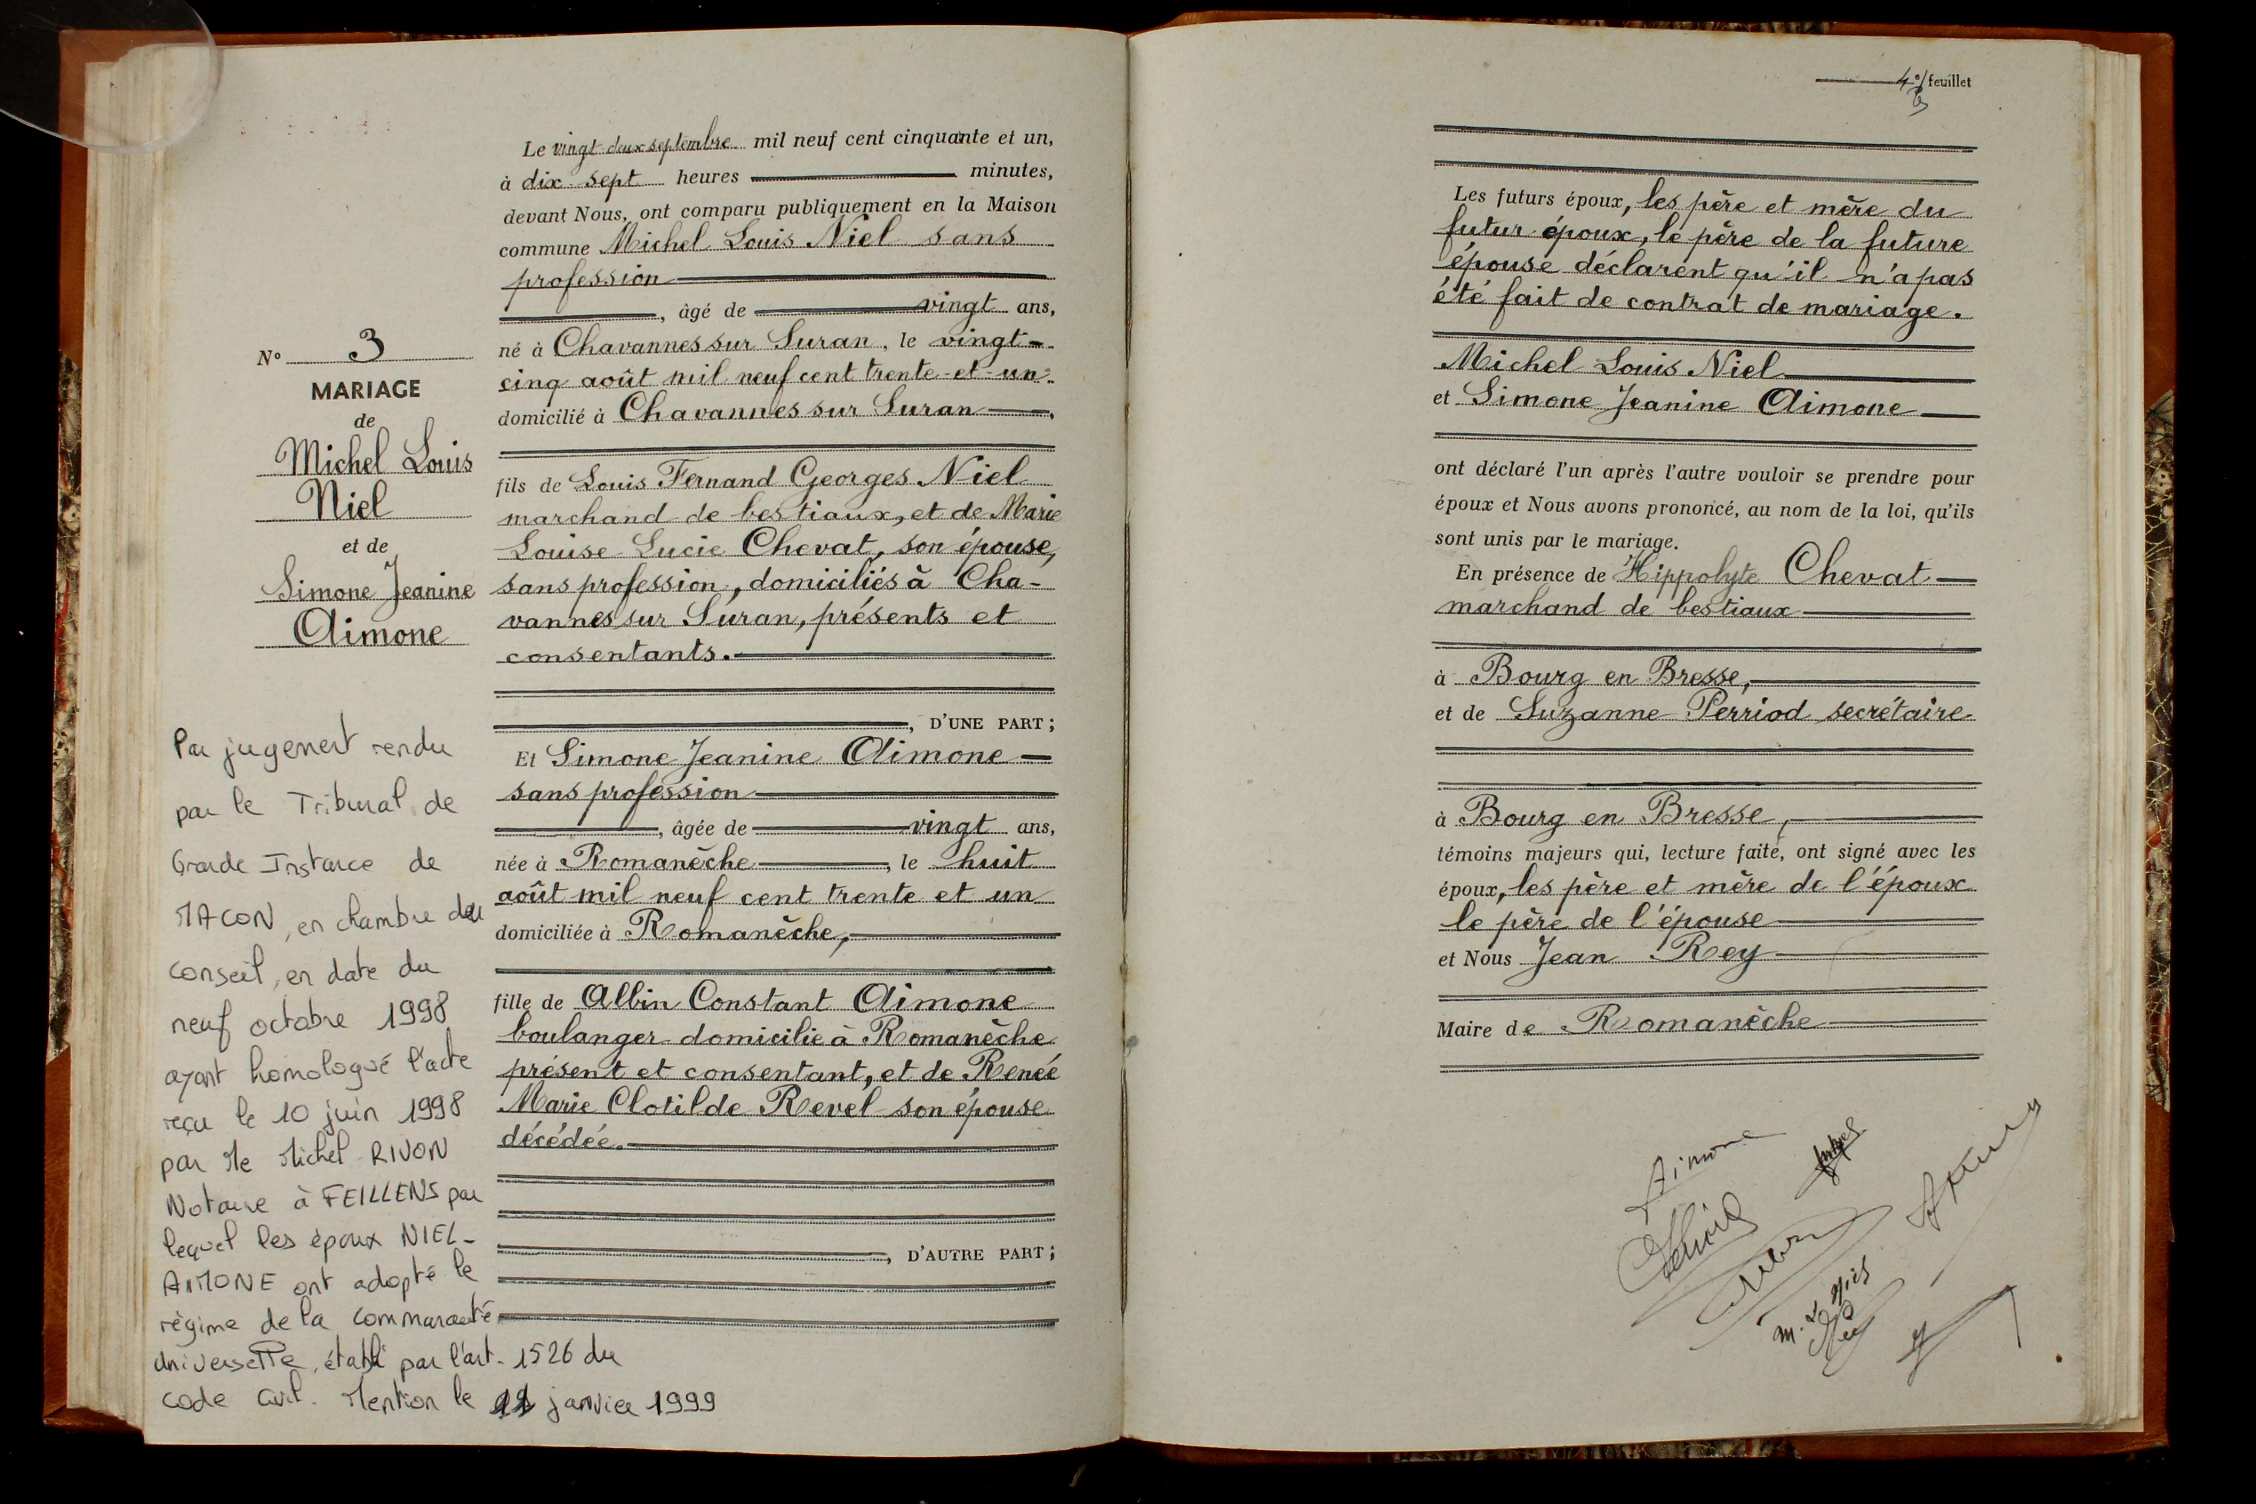 Le vingt deux septembre mil neuf cent cinquante et un,
à dix sept heures minutes,
devant Nous, ont comparu publiquement en la Maison
commune Michel Louis Niel sans
profession
, âgé de vingt ans,
né à Chavannes sur Suran, le vingt-
cinq août mil neuf cent trente et un
domicilié à Chavannes sur Suran
fils de Louis Fernand Georges Niel
marchand de bestiaux, et de Marie
Louise Lucie Chevat, son épouse,
sans profession, domiciliés à Cha-
vannes sur Suran, présents et
consentants.
, D'UNE PART;
Et Simone Jeanine Aimone
sans profession
, âgée de vingt ans,
née à Romanèche, le huit
août mil neuf cent trente et un
domiciliée à Romanèche,
fille de Albin Constant Aimone
boulanger domicilié à Romanèche
présent et consentant, et de Renée
Marie Clotilde Revel son épouse
décédée.
, D'AUTRE PART;
N° 3
MARIAGE
de
Michel Louis
Niel
et de
Simone Jeanine
Aimone
Par jugement rendu
par le Tribunal de
Grande Instance de
MACON, en chambre du
conseil, en date du
neuf octobre 1998
ayant homologué l'acte
reçu le 10 juin 1998
par Me Michel RIVON
Notaire à FEILLENS par
lequel les époux NIEL-
AIMONE ont adopté le
régime de la communauté
universelle, établi par l'art. 1526 du
code civil. Mention le 11 janvier 1999
4e feuillet
Les futurs époux, les père et mère du
futur époux, le père de la future
épouse déclarent qu'il n'a pas
été fait de contrat de mariage.
Michel Louis Niel
et Simone Jeanine Aimone
ont déclaré l'un après l'autre vouloir se prendre pour
époux et Nous avons prononcé, au nom de la loi, qu'ils
sont unis par le mariage.
En présence de Hippolyte Chevat
marchand de bestiaux
à Bourg en Bresse,
et de Suzanne Perriod secrétaire
à Bourg en Bresse,
témoins majeurs qui, lecture faite, ont signé avec les
époux, les père et mère de l'époux
le père de l'épouse
et Nous Jean Rey
Maire de Romanèche
Aimone